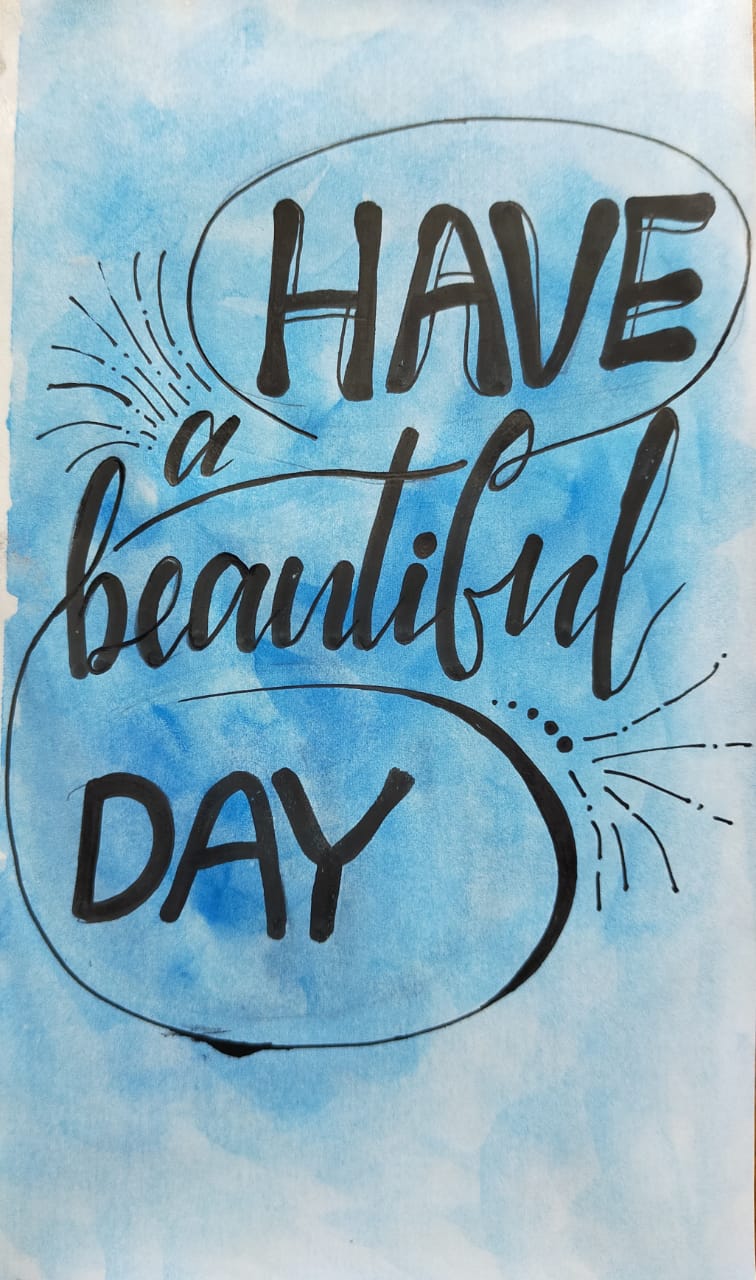 HAVE
a
beautiful
DAY